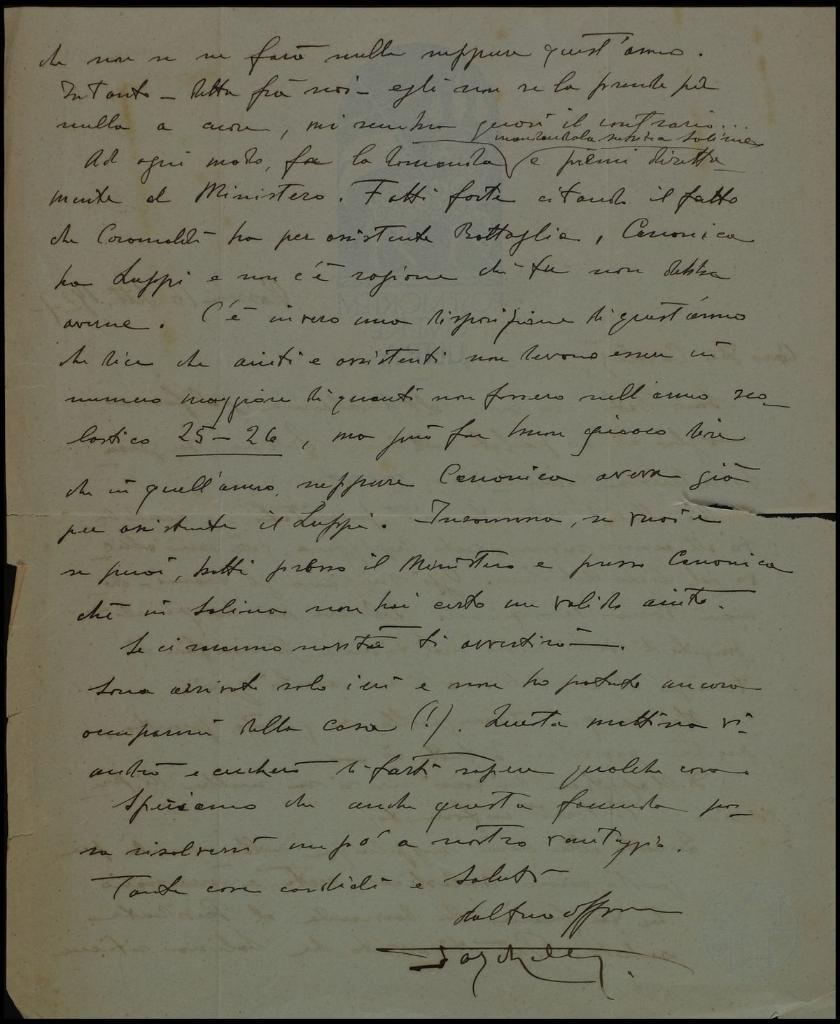 che non se ne farà nulla neppure quest'anno.
Intanto – detta fra noi – egli non se la prende per
nulla a cuore, mi sembra quasi il contrario...
mandandola subito a Solinas
Ad ogni modo, fa la domanda e premi diretta-
mente al Ministero. Fatti forte citando il fatto
che Coromaldi ha per assistente Battaglia, Canonica
ha Luppi e non c'è ragione che tu non debba
averne. C'è invero una disposizione di quest'anno
che dice che aiuti e assistenti non devono essere in
numero maggiore di quanti non fossero nell'anno sco-
lastico 25-26, ma può far buon giuoco dire
che in quell'anno, neppure Canonica aveva già
per assistente il Luppi. Insomma, se vuoi e
se puoi, batti presso il Ministero e presso Canonica
chè in Solina non hai certo un valido aiuto.
Se ci saranno novità ti avvertirò.
Sono arrivato solo ieri e non ho potuto ancora
occuparmi della casa (!). Questa mattina vi
andrò e cercherò di farti sapere qualche cosa.
Speriamo che anche questa faccenda pos-
sa risolversi un po' a nostro vantaggio.
Tante cose cordiali e saluti
dal tuo aff.mo